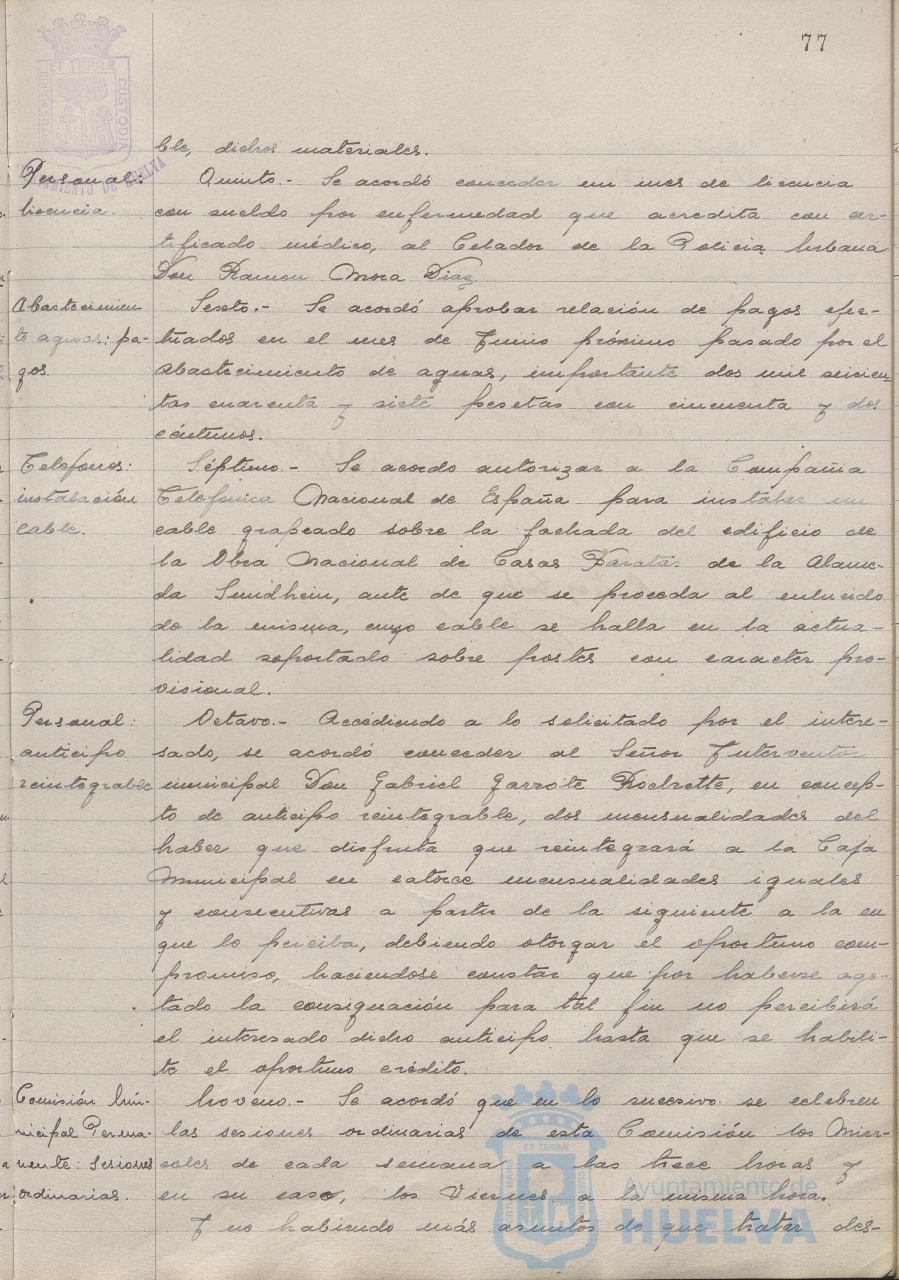 77
ET TERRÆ
CUSTODIA
ble, dichos materiales.
Personal:
licencia.
Quinto.- Se acordó conceder un mes de licencia
con sueldo por enfermedad que acredita con cer-
tificado médico, al Celador de la Policia Urbana
Don Ramon Mora Diaz.
Abastecimien-
to aguas: pa-
gos.
Sexto.- Se acordó aprobar relación de pagos efec-
tuados en el mes de Junio próximo pasado por el
Abastecimiento de aguas, importante dos mil seiscien-
tas cuarenta y siete pesetas con cincuenta y dos
céntimos.
Telefonos:
instalación
cable.
Séptimo.- Se acordo autorizar a la Compañia
Telefónica Nacional de España para instalar un
cable grapeado sobre la fachada del edificio de
la Obra Nacional de Casas Baratas de la Alame-
da Sundheim, ante de que se proceda al enlucido
de la misma, cuyo cable se halla en la actua-
lidad soportado sobre postes con caracter pro-
visional.
Personal:
anticipo
reintegrable
Octavo.- Accediendo a lo solicitado por el intere-
sado, se acordó conceder al Señor Interventor
municipal Don Gabriel Garrote Rochette, en concep-
to de anticipo reintegrable, dos mensualidades del
haber que disfruta que reintegrará a la Caja
Municipal en catorce mensualidades iguales
y consecutivas a partir de la siguiente a la en
que lo perciba, debiendo otorgar el oportuno com-
promiso, haciendose constar que por haberse ago-
tado la consignación para tal fin no percibirá
el interesado dicho anticipo hasta que se habili-
te el oportuno crédito.
Comisión Mu-
nicipal Perma-
nente: Sesiones
ordinarias.
Noveno.- Se acordó que en lo sucesivo se celebren
las sesiones ordinarias de esta Comisión los Mier-
coles de cada semana a las trece horas y
en su caso, los Viernes a la misma hora.
Y no habiendo más asuntos de que tratar des-
Ayuntamiento de
HUELVA